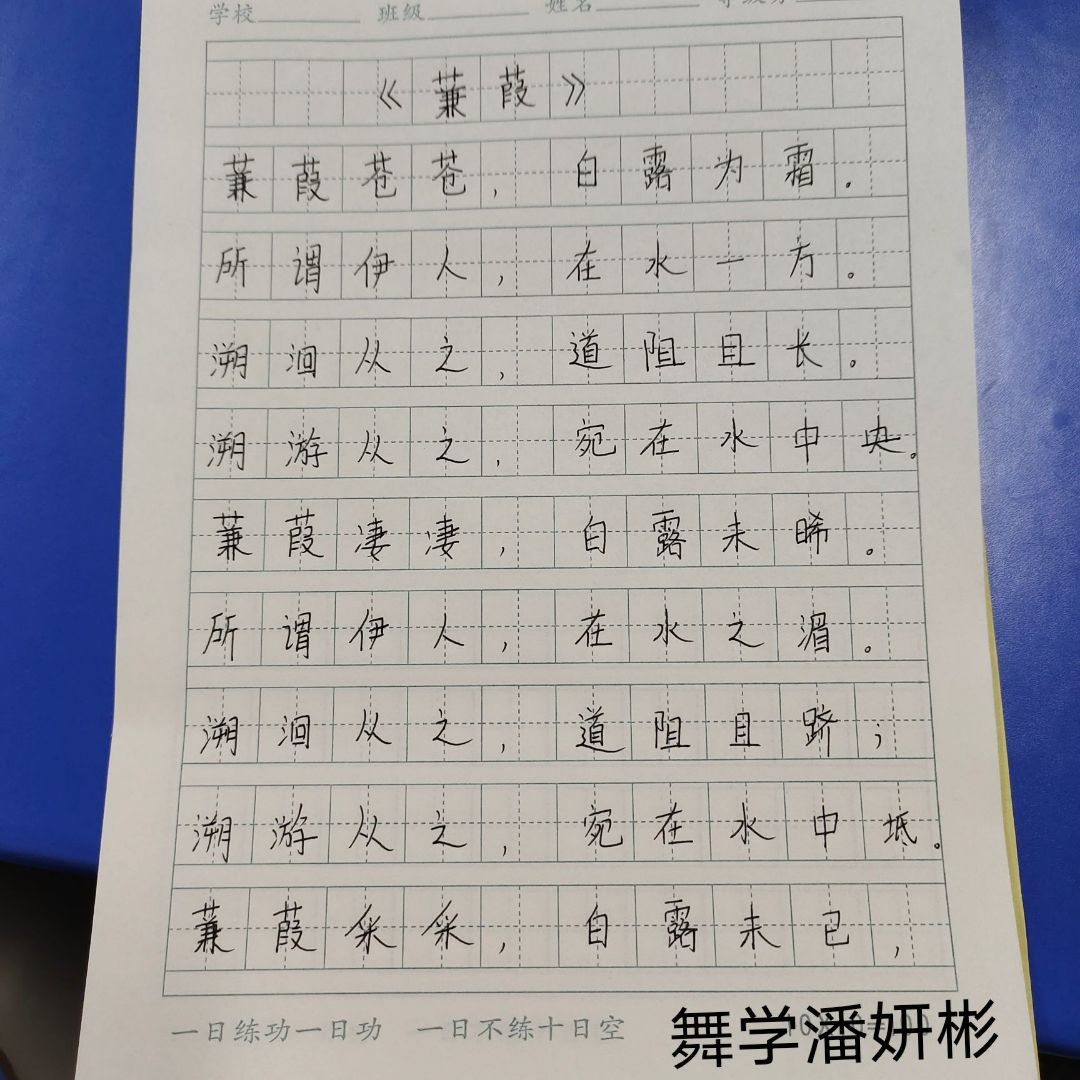 学校 班级 姓名
《蒹葭》
蒹葭苍苍，白露为霜。
所谓伊人，在水一方。
溯洄从之，道阻且长。
溯游从之，宛在水中央。
蒹葭凄凄，白露未晞。
所谓伊人，在水之湄。
溯洄从之，道阻且跻；
溯游从之，宛在水中坻。
蒹葭采采，白露未已，
一日练功一日功 一日不练十日空
舞学潘妍彬